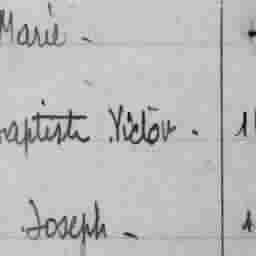 Marie -
Baptiste Victor .
Joseph -